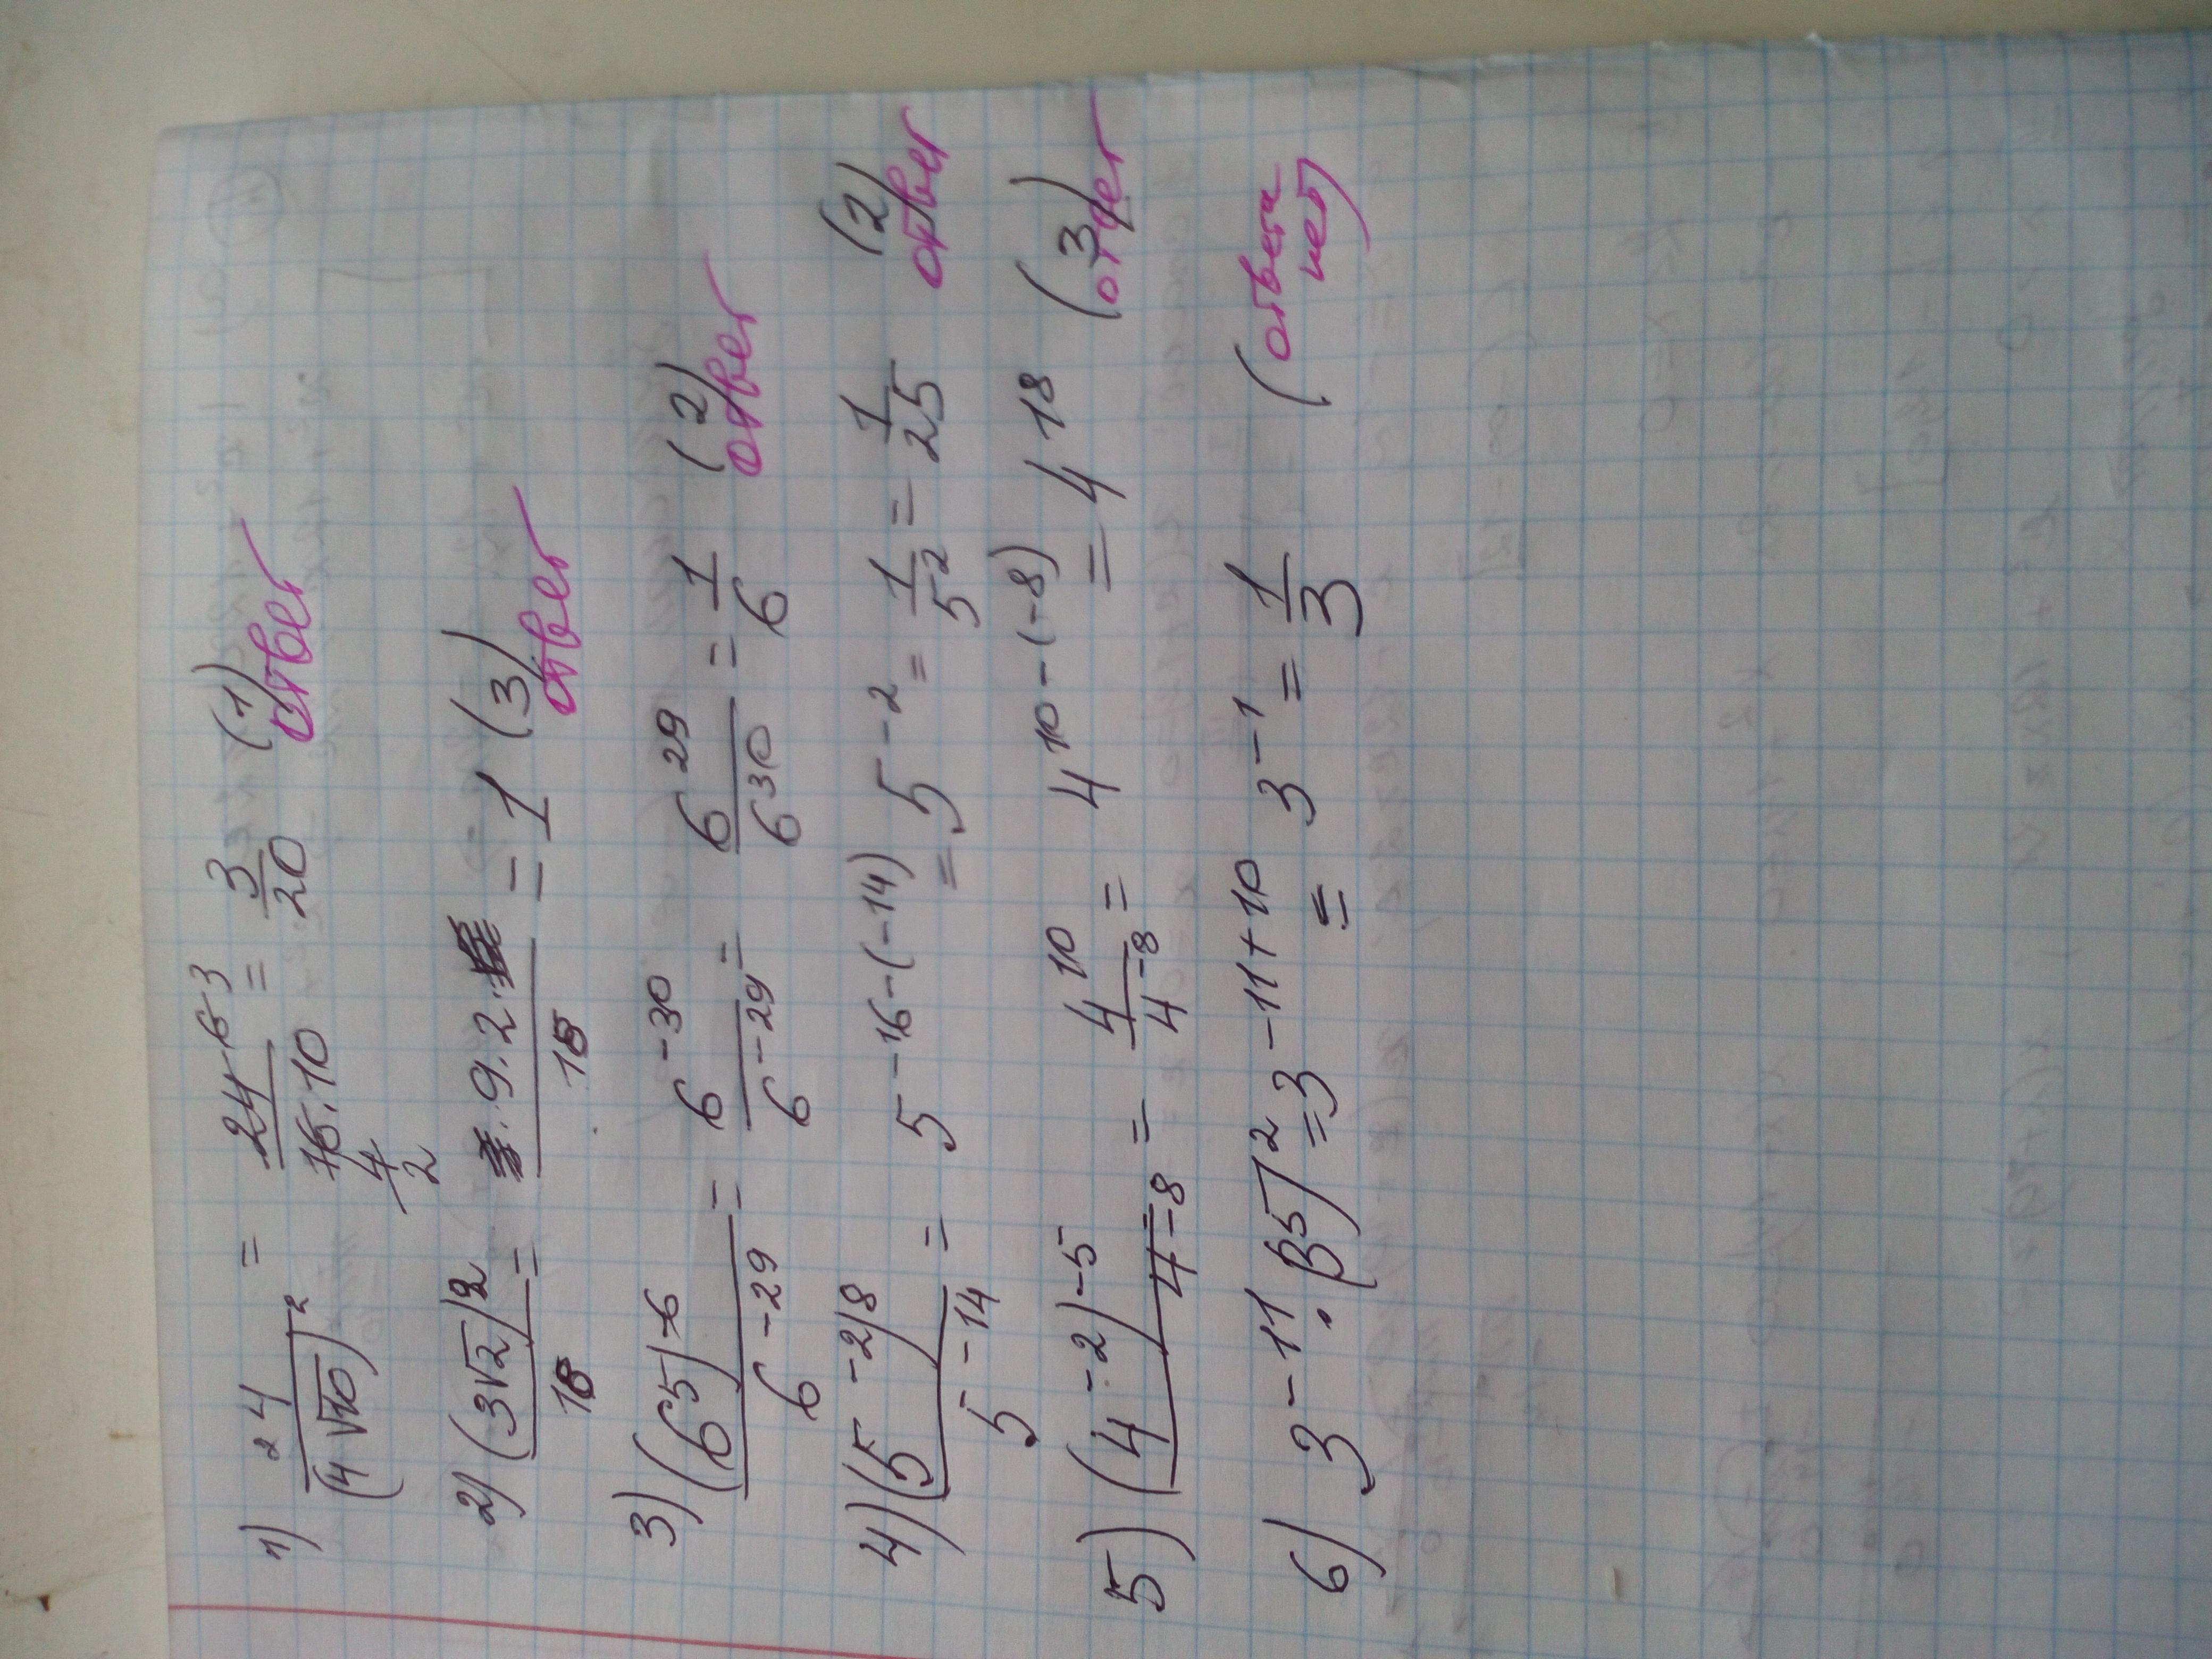 1) 24/(4√10)² = 24 6 3/16·10 4 2 = 3/20 (1) ответ
2) (3√2)²/18 = 9·2/18 = 1 (3) ответ
3) (6⁵)⁻⁶/6⁻²⁹ = 6⁻³⁰/6⁻²⁹ = 6²⁹/6³⁰ = 1/6 (2) ответ
4) (5⁻²)⁸/5⁻¹⁴ = 5⁻¹⁶⁻⁽⁻¹⁴⁾ = 5⁻² = 1/5² = 1/25 (2) ответ
5) (4⁻²)⁻⁵/4⁻⁸ = 4¹⁰/4⁻⁸ = 4¹⁰⁻⁽⁻⁸⁾ = 4¹⁸ (3) ответ
6) 3⁻¹¹·(3⁵)² = 3⁻¹¹⁺¹⁰ = 3⁻¹ = 1/3 (ответа нет)